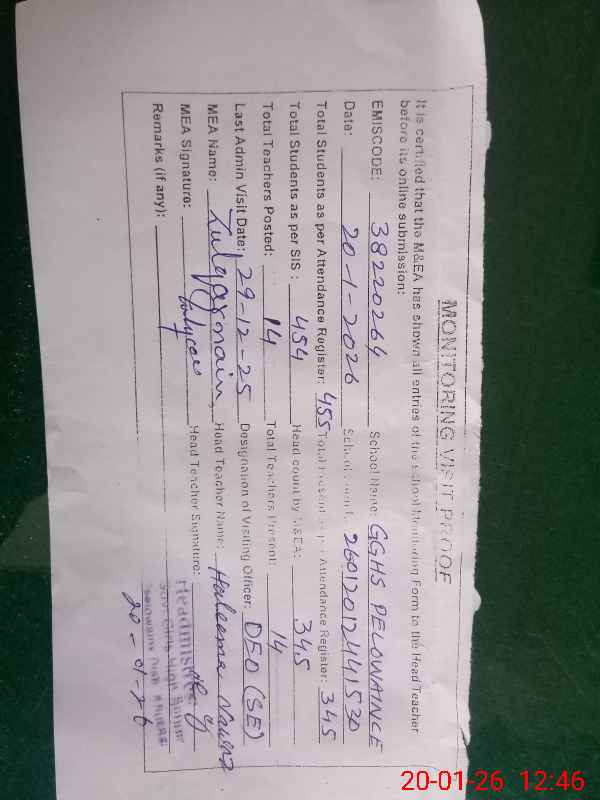 MONITORING VISIT PROOF
It is certified that the M&EA has shown all entries of the School Monitoring Form to the Head Teacher
before its online submission:
EMISCODE: 38220264 School Name: GGHS PELOWAINCE
Date: 20-1-2026 School 260120124441530
Total Students as per Attendance Register: 455 Total Present as per Attendance Register: 345
Total Students as per SIS: 454 Head count by M&EA: 345
Total Teachers Posted: 14 Total Teachers Present: 14
Last Admin Visit Date: 29-12-25 Designation of Visiting Officer: DEO (SE)
MEA Name: Head Teacher Name: Haleema
MEA Signature: Head Teacher Signature:
Remarks (if any):
Headmistress
Govt. Girls High School
20-01-26
20-01-26 12:46